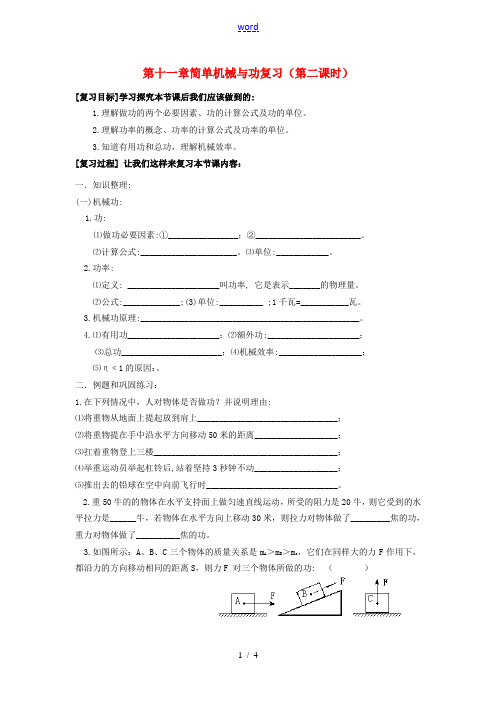 word
第十一章简单机械与功复习（第二课时）
[复习目标]学习探究本节课后我们应该做到的:
1.理解做功的两个必要因素、功的计算公式及功的单位。
2.理解功率的概念、功率的计算公式及功率的单位。
3.知道有用功和总功，理解机械效率。
[复习过程] 让我们这样来复习本节课内容：
一．知识整理:
(一)机械功:
1.功:
⑴做功必要因素:①________________；②________________________。
⑵计算公式:______________________。⑶单位:____________。
2.功率:
⑴定义: _____________________叫功率, 它是表示_______的物理量。
⑵公式:_____________;(3)单位:__________ ;1千瓦=___________瓦。
3.机械功原理:__________________________________________________。
4.⑴有用功_____________________；⑵额外功:_____________________；
⑶总功_______________________；⑷机械效率:___________________；
⑸η＜1的原因:。
二．例题和巩固练习：
1.在下列情况中，人对物体是否做功？并说明理由:
⑴将重物从地面上提起放到肩上________________________________；
⑵将重物提在手中沿水平方向移动50米的距离___________________；
⑶扛着重物登上三楼__________________________________________；
⑷举重运动员举起杠铃后,站着坚持3秒钟不动___________________；
⑸推出去的铅球在空中向前飞行时______________________________。
2.重50牛的的物体在水平支持面上做匀速直线运动，所受的阻力是20牛，则它受到的水
平拉力是______牛，若物体在水平方向上移动30米，则拉力对物体做了_________焦的功，
重力对物体做了__________焦的功。
3.如图所示：A、B、C三个物体的质量关系是m
A＞mB＞mc，它们在同样大的力F作用下，
都沿力的方向移动相同的距离S，则力F 对三个物体所做的功: （ ）
A F B F C F
1 / 4